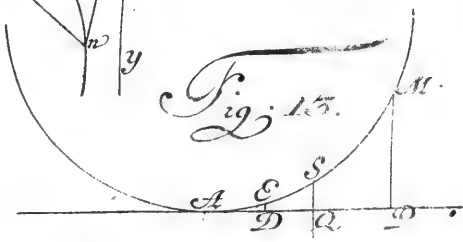 n
y
Fig. 15.
M.
S
A E
D Q P